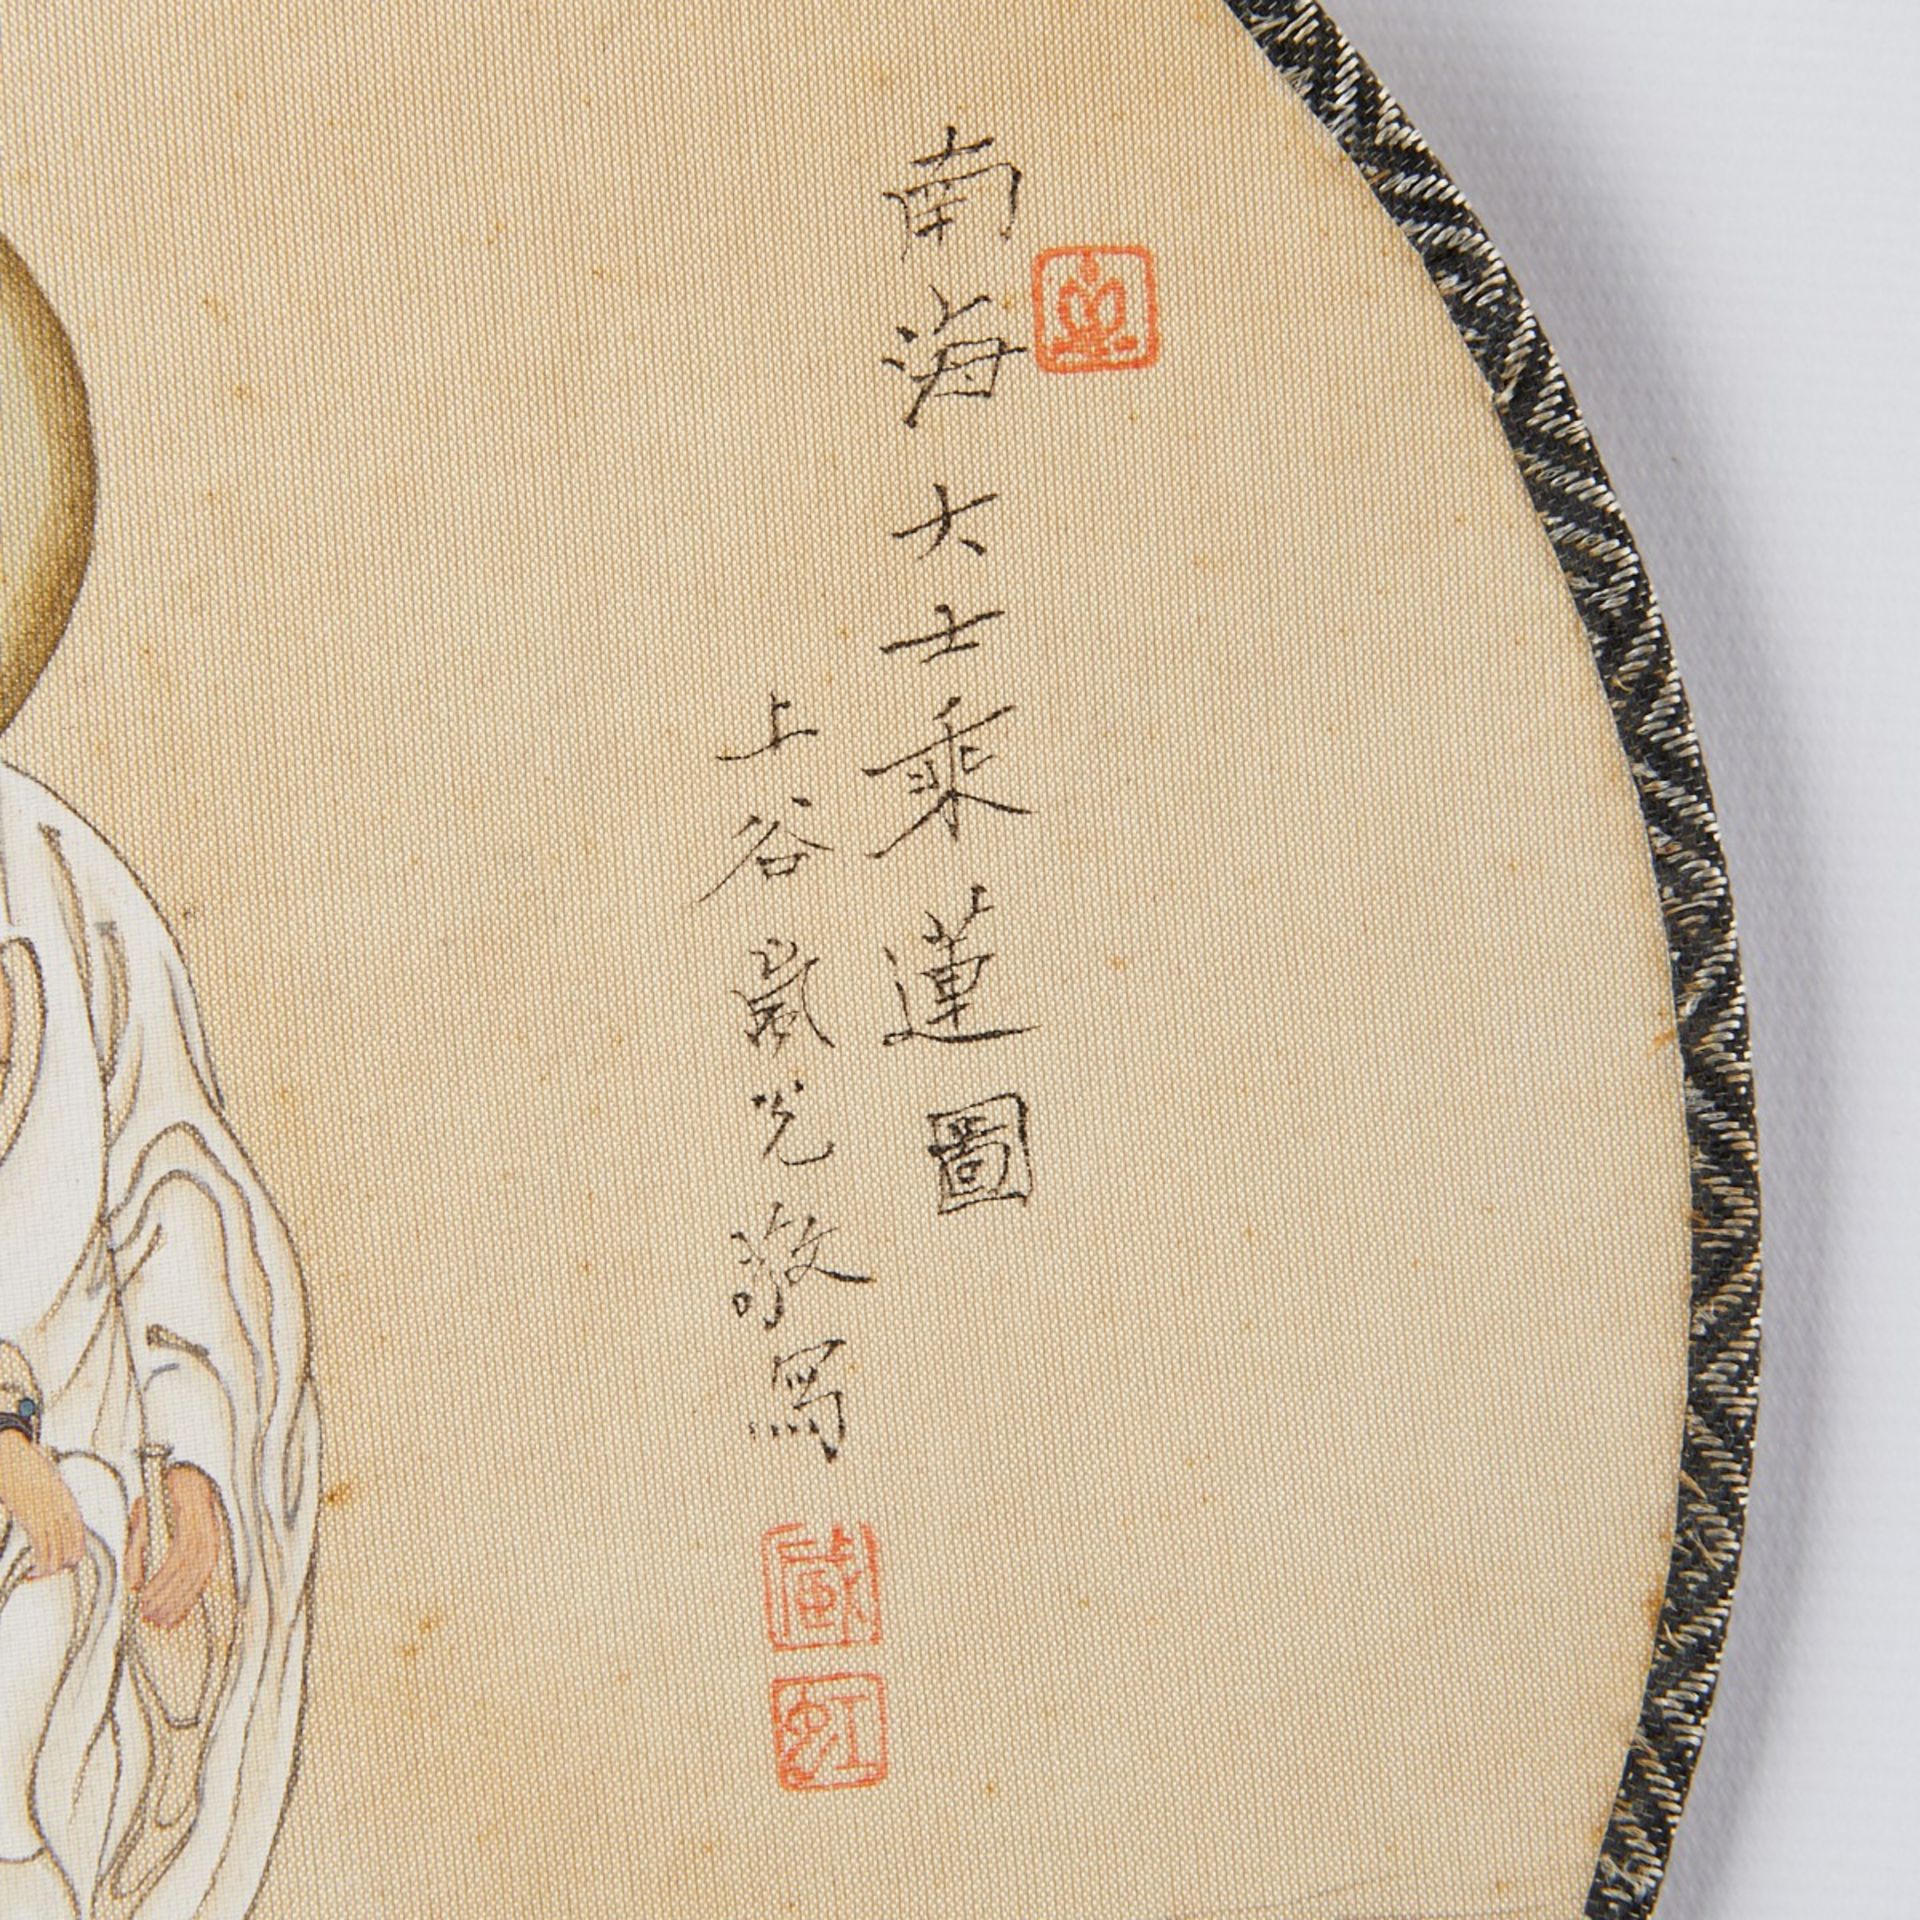 南海大士乘蓮圖
上谷嵗光敬寫
虹